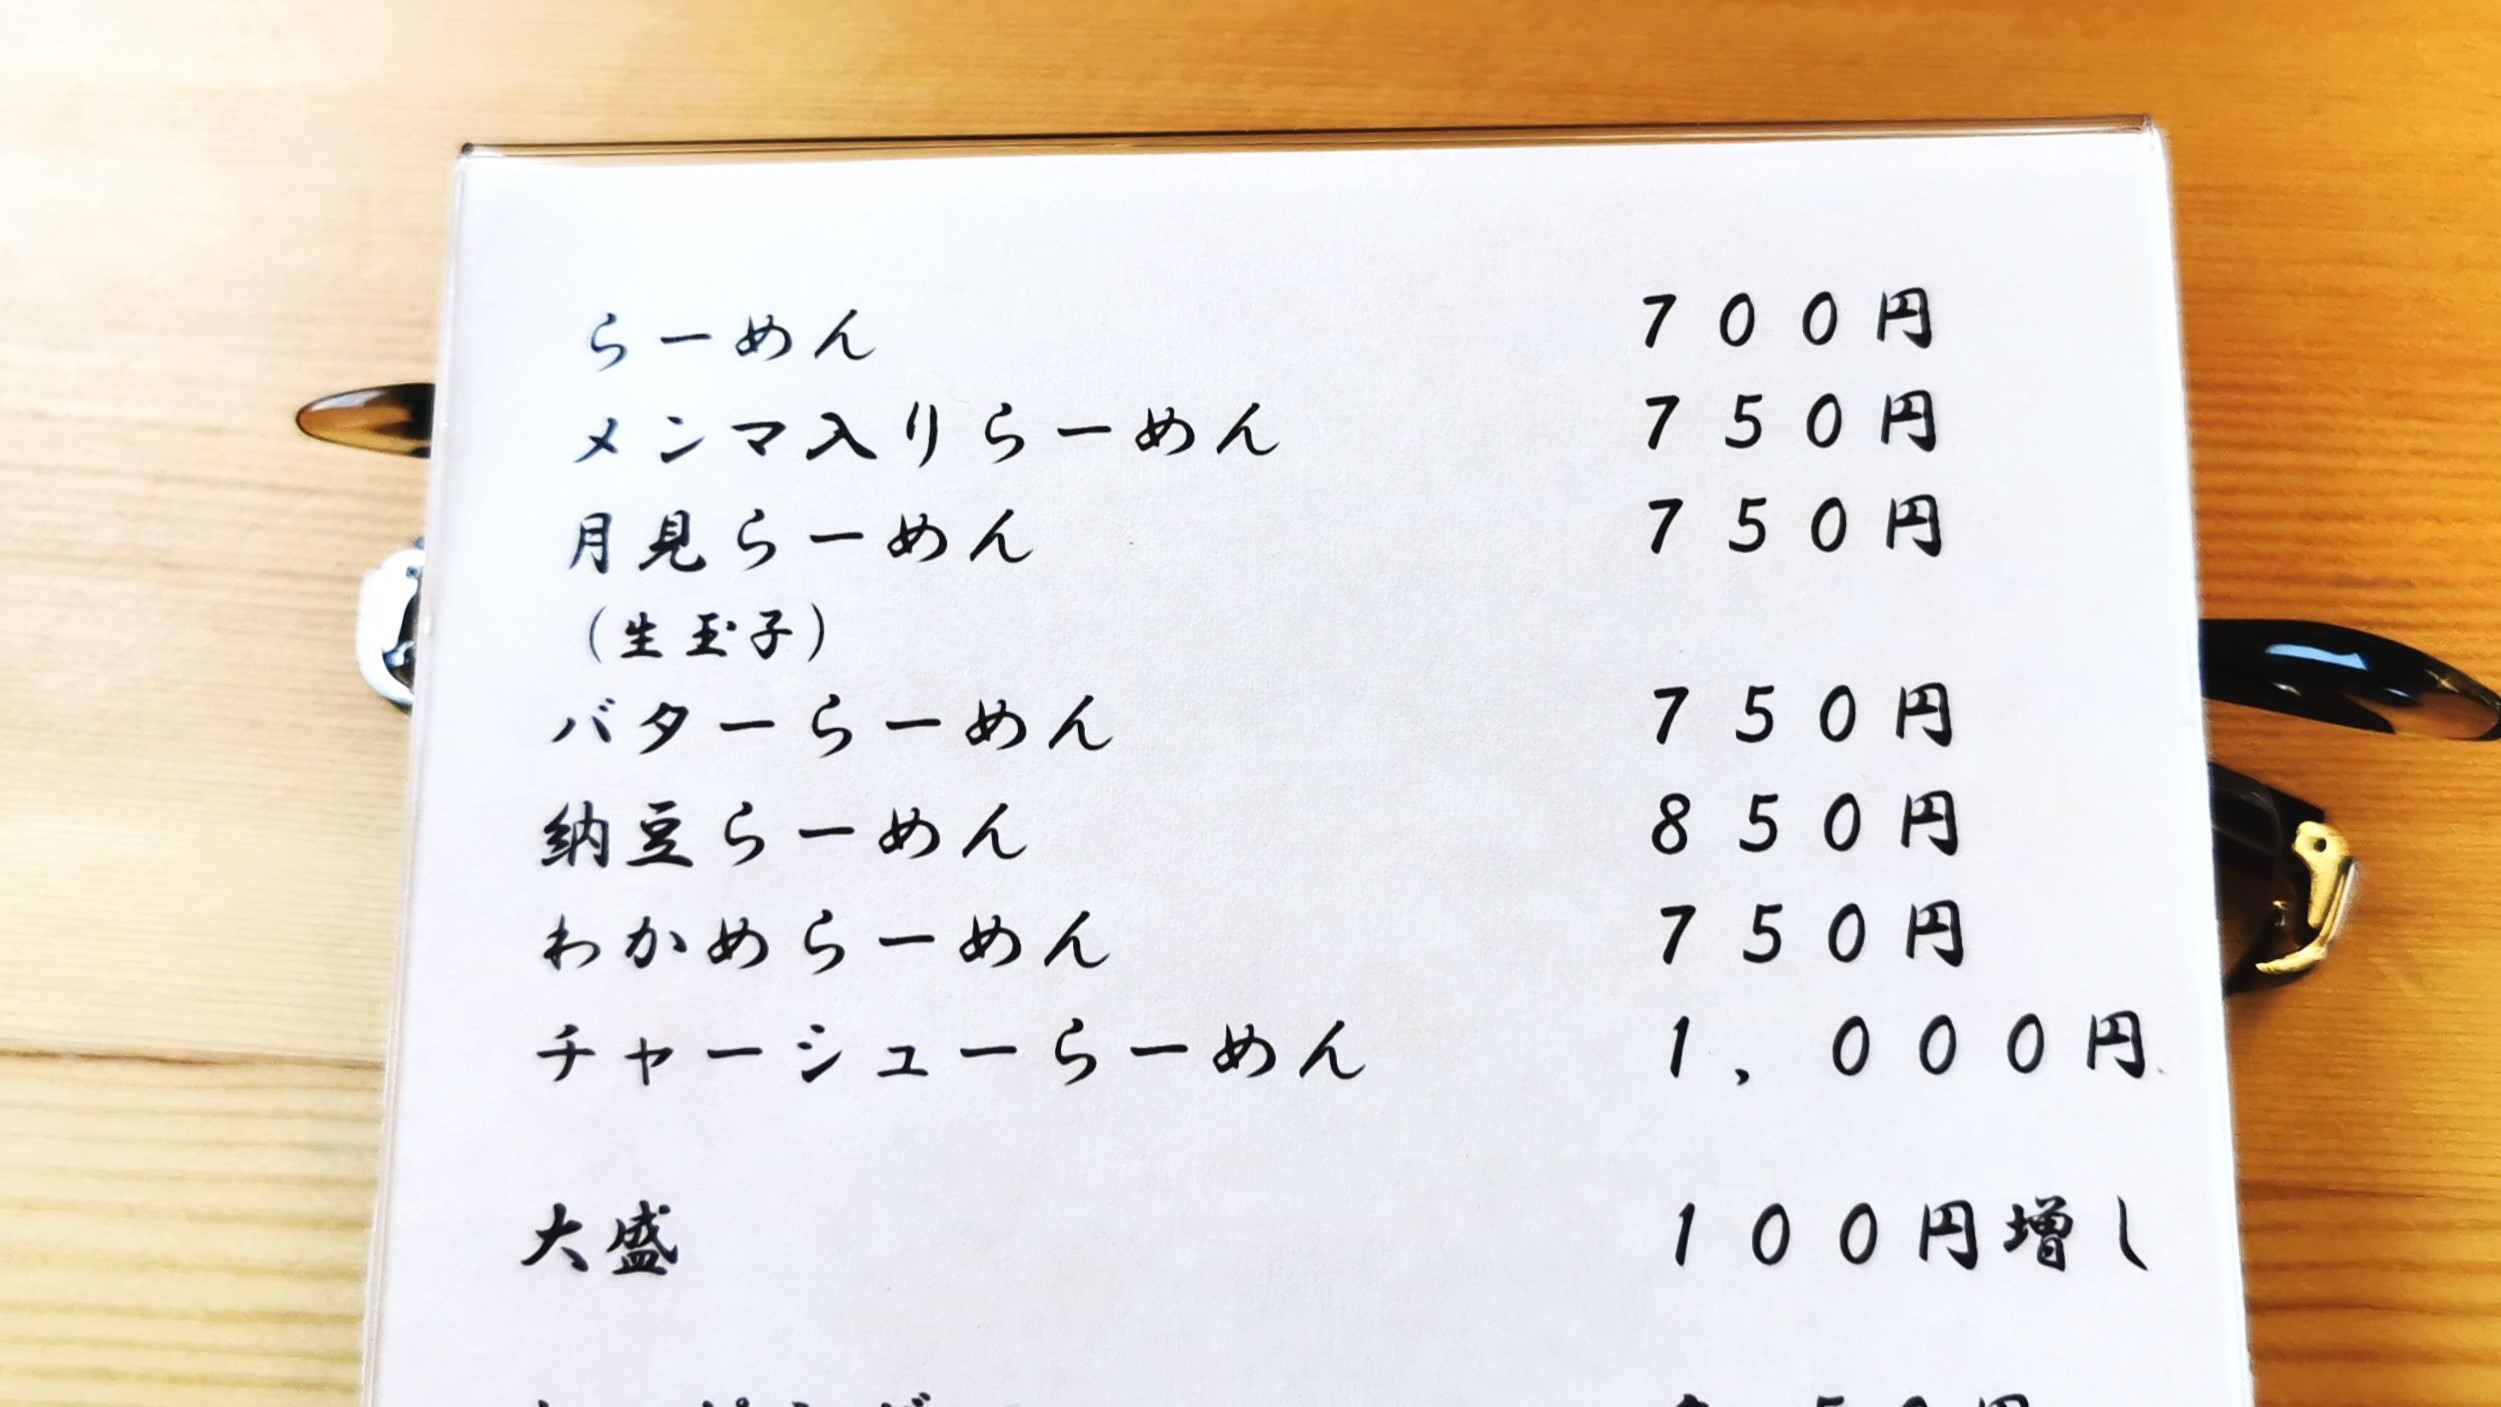 らーめん 700円
メンマ入りらーめん 750円
月見らーめん 750円
(生玉子)
バターらーめん 750円
納豆らーめん 850円
わかめらーめん 750円
チャーシューらーめん 1,000円
大盛 100円増し